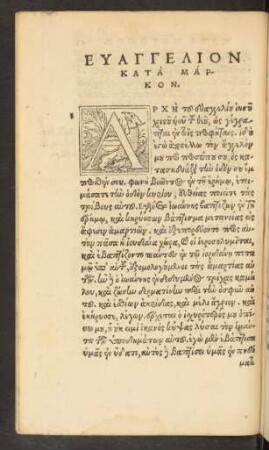 ΕΥΑΓΓΕΛΙΟΝ
ΚΑΤΑ ΜΑΡ-
ΚΟΝ.
ΑΡΧΗ τοῦ εὐαγγελίου ἰησοῦ
χριστοῦ υἱοῦ τοῦ θεοῦ, ὡς γέγρα-
πται ἐν τοῖς προφήταις. ἰδοὺ
ἐγὼ ἀποστέλλω τὸν ἄγγελόν
μου πρὸ προσώπου σου, ὃς κα-
τασκευάσει τὴν ὁδόν σου ἔμ-
προσθέν σου. φωνὴ βοῶντος ἐν τῇ ἐρήμῳ, ἑτοι-
μάσατε τὴν ὁδὸν κυρίου, εὐθείας ποιεῖτε τὰς
τρίβους αὐτοῦ. ἐγένετο ἰωάννης βαπτίζων ἐν τῇ
ἐρήμῳ, καὶ κηρύσσων βάπτισμα μετανοίας εἰς
ἄφεσιν ἁμαρτιῶν. καὶ ἐξεπορεύετο πρὸς αὐ-
τὸν πᾶσα ἡ ἰουδαία χώρα, καὶ οἱ ἱεροσολυμῖται,
καὶ ἐβαπτίζοντο πάντες ἐν τῷ ἰορδάνῃ ποτα-
μῷ ὑπ' αὐτοῦ, ἐξομολογούμενοι τὰς ἁμαρτίας αὐ-
τῶν. ἦν δὲ ὁ ἰωάννης ἐνδεδυμένος τρίχας καμή-
λου, καὶ ζώνην δερματίνην περὶ τὴν ὀσφὺν αὐ-
τοῦ. καὶ ἐσθίων ἀκρίδας, καὶ μέλι ἄγριον. καὶ
ἐκήρυσσε, λέγων. ἔρχεται ὁ ἰσχυρότερός μου ὀπί-
σω μου, οὗ οὐκ εἰμὶ ἱκανὸς κύψας λῦσαι τὸν ἱμάν-
τα τῶν ὑποδημάτων αὐτοῦ. ἐγὼ μὲν ἐβάπτισα
ὑμᾶς ἐν ὕδατι, αὐτὸς δὲ βαπτίσει ὑμᾶς ἐν πνεύ-